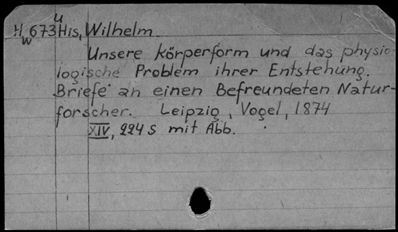 u
H 673 His, Wilhelm.
w
Unsere körperform und das physio-
logische Problem ihrer Entstehung.
Briefe an einen Befreundeten Natur-
forscher. Leipzig, Vogel, 1874
XIV, 224 s mit Abb.